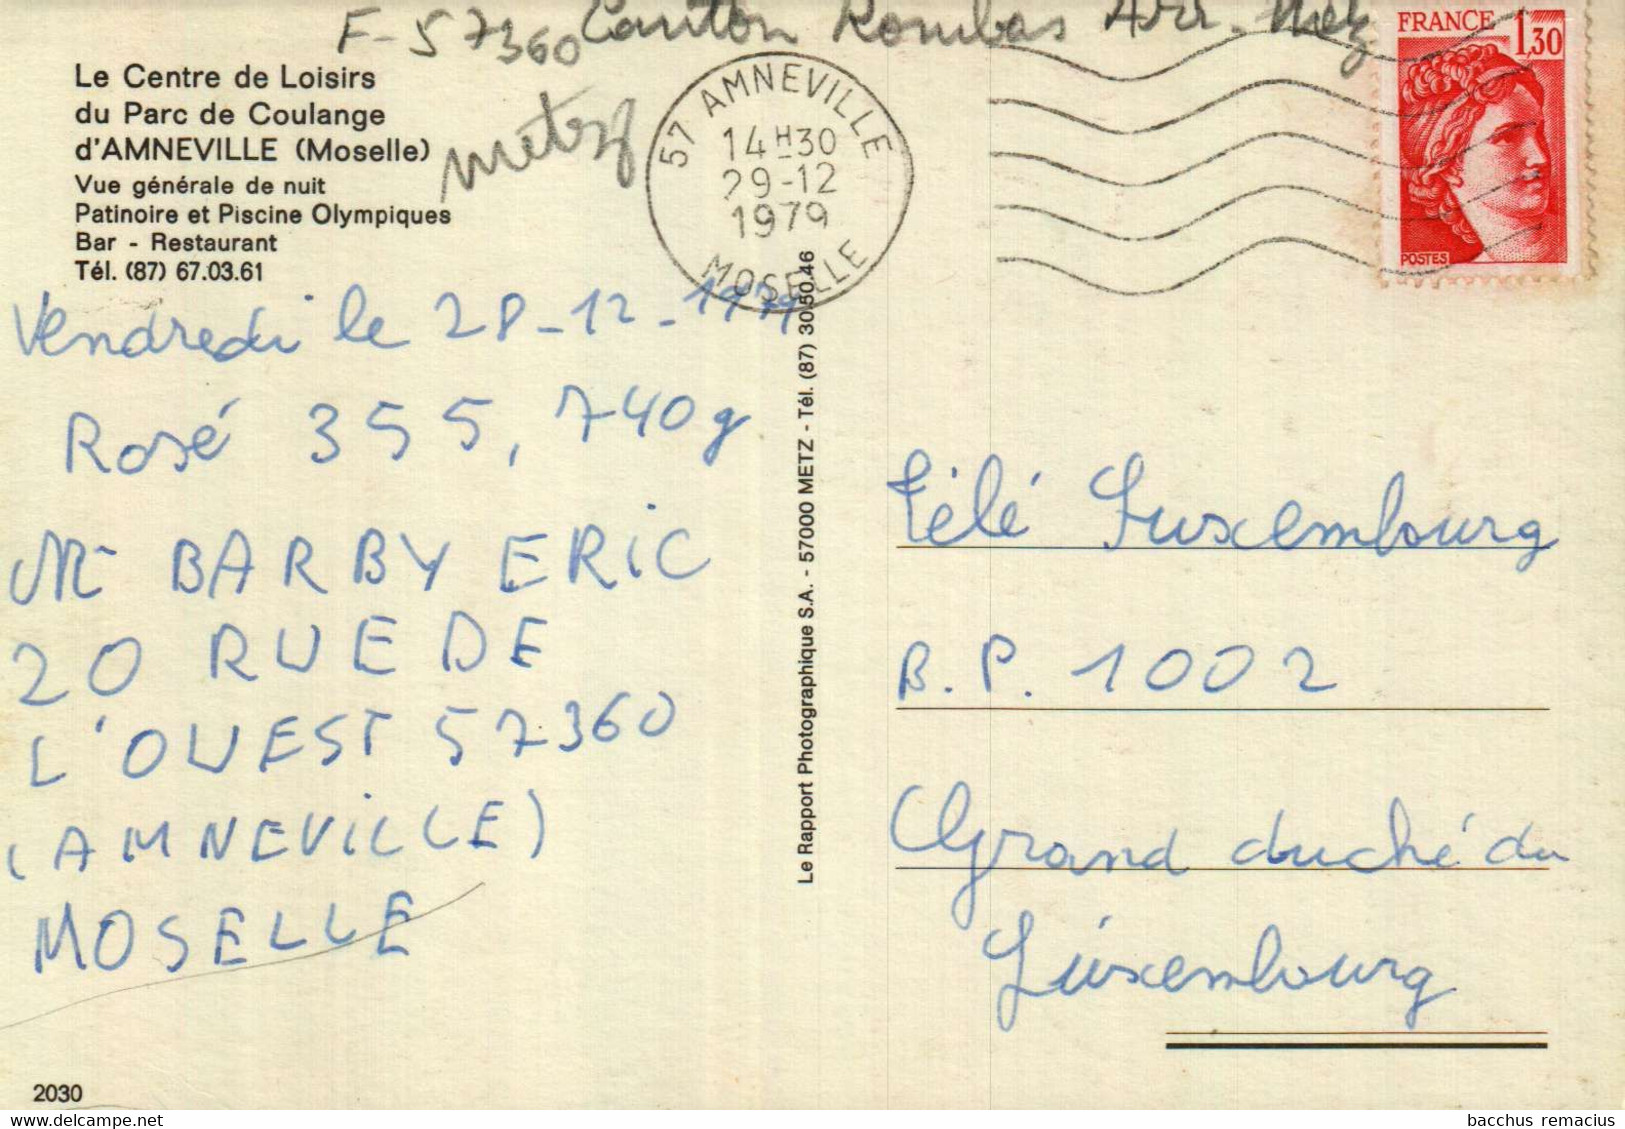 F-57360 Canton Rombas Arr. Metz
Le Centre de Loisirs
du Parc de Coulange
d'AMNEVILLE (Moselle)
Vue générale de nuit
Patinoire et Piscine Olympiques
Bar - Restaurant
Tél. (87) 67.03.61
57 AMNEVILLE
14H30
29-12
1979
MOSELLE
FRANCE 1,30
POSTES
Vendredi le 28-12-1979
Rosé 355,740g
Mr BARBY ERIC
20 RUE DE
L'OUEST 57360
(AMNEVILLE)
MOSELLE
Le Rapport Photographique S.A. - 57000 METZ - Tél. (87) 30.50.46
Télé Luxembourg
B.P. 1002
Grand duché du
Luxembourg
2030
delcampe.net
bacchus remacius